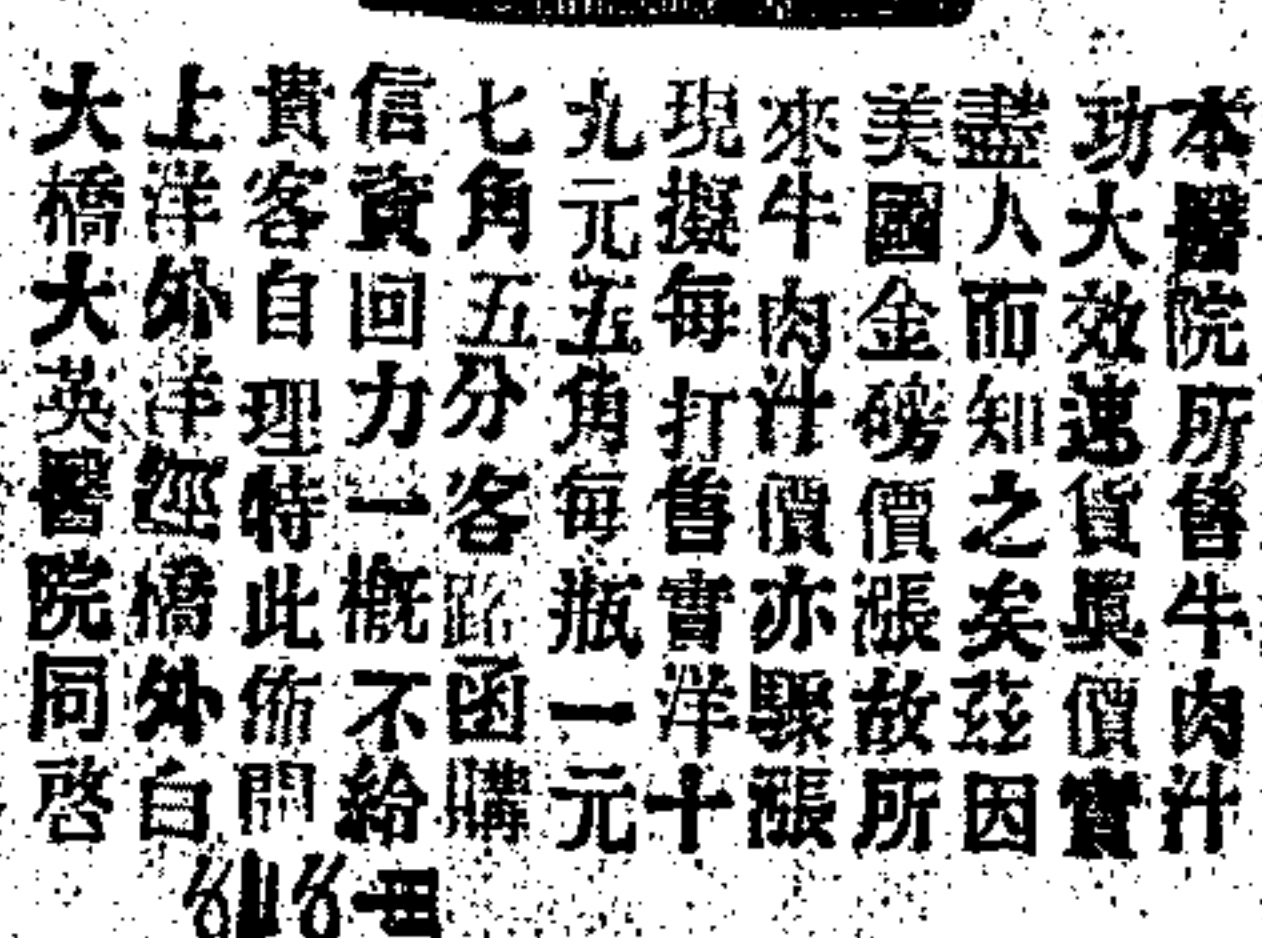 本醫院所售牛肉汁
功大效速貨真價實
盡人而知之矣茲因
美國金磅價漲故所
來牛肉汁價亦驟漲
現擬每打售實洋十
九元五角每瓶一元
七角五分客路函購
信資回力一概不給
貴客自理特此佈聞
上洋外洋涇橋外白
大橋大英醫院同啓